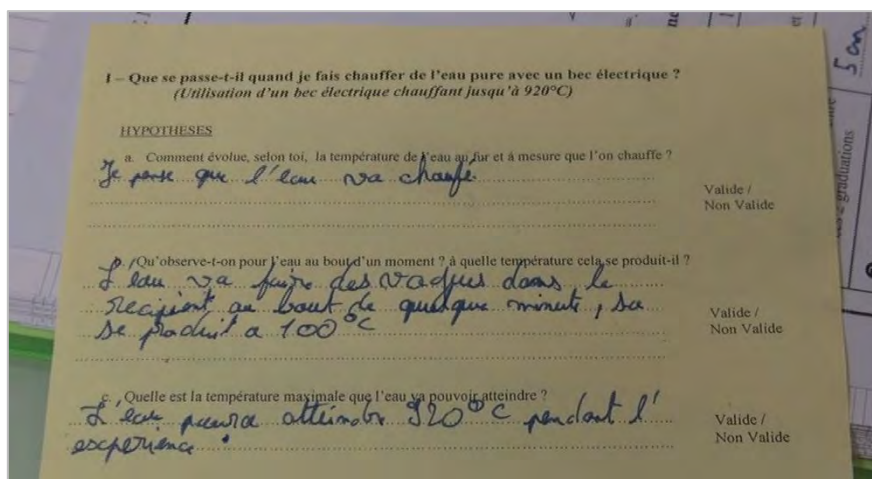 I – Que se passe-t-il quand je fais chauffer de l'eau pure avec un bec électrique ?
(Utilisation d'un bec électrique chauffant jusqu'à 920°C)
HYPOTHESES
a. Comment évolue, selon toi, la température de l'eau au fur et à mesure que l'on chauffe ?
Je pense que l'eau va chaufé.
Valide /
Non Valide
Qu'observe-t-on pour l'eau au bout d'un moment ? à quelle température cela se produit-il ?
L'eau va faire des vagues dans le
recipient au bout de quelque minute, sa
se produit a 100°C
Valide /
Non Valide
c. Quelle est la température maximale que l'eau va pouvoir atteindre ?
L'eau poura atteindre 920°C pendant l'
experience.
Valide /
Non Valide
2 graduations
5 cm